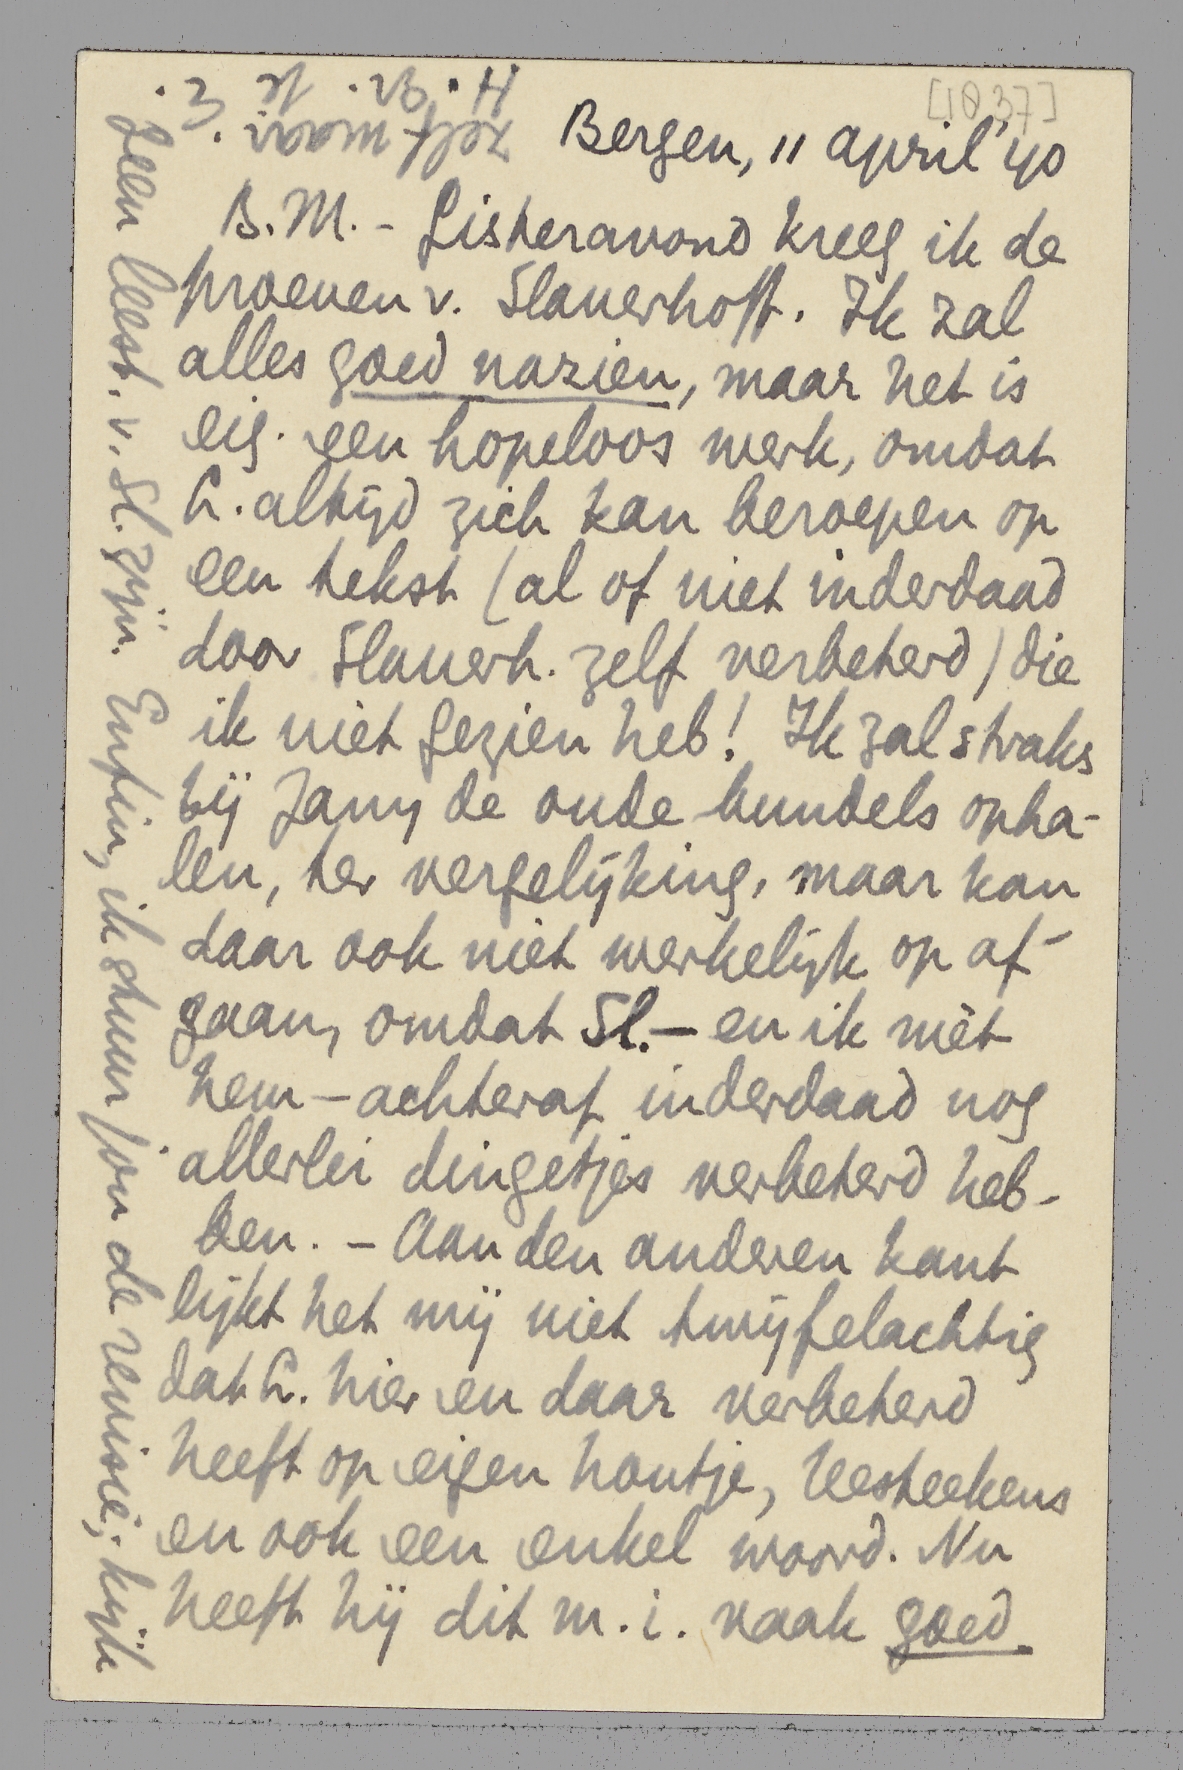 [1037]
Bergen, 11 april '40
B.M. - Gisteravond kreeg ik de
proeven v. Slauerhoff. Ik zal
alles goed nazien, maar het is
eig. een hopeloos werk, omdat
L. altijd zich kan beroepen op
een tekst (al of niet inderdaad
door Slauerh. zelf verbeterd) die
ik niet gezien heb! Ik zal straks
bij Jany de oude bundels opha-
len, ter vergelijking, maar kan
daar ook niet werkelijk op af-
gaan, omdat Sl. — en ik mèt
hem — achteraf inderdaad nog
allerlei dingetjes verbeterd heb-
ben. - Aan den anderen kant
lijkt het mij niet twijfelachtig
dat L. hier en daar verbeterd
heeft op eigen houtje, leesteekens
en ook een enkel woord. Nu
heeft hij dit m.i. vaak goed
leen leest. v. Sl. zijn. Enfin, ik stuur jou de revisie; kijk
zelf maar.
H. gr. je E.